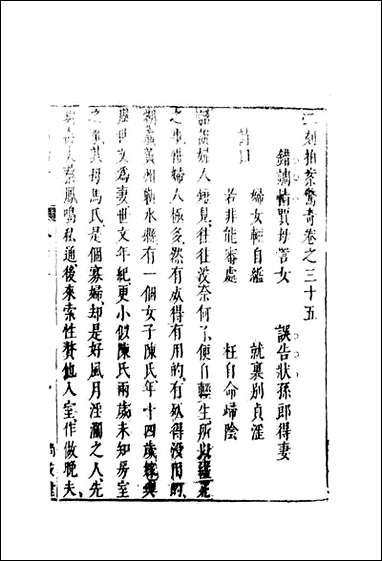 二刻拍案驚奇卷之三十五
錯調情賈母詈女　誤告狀孫郎得妻
詩曰
婦女輕自縊　就裏別貞淫
若非能審處　枉自命歸陰
話說婦人短見，往往沒奈何了，便自輕生。所以縊死
之事，惟婦人極多。然有死得有用的，有死得沒用的。
湖廣黃州蘄水縣有一個女子陳氏，年十四歲，嫁與
周世文為妻。世文年紀，更小似陳氏兩歲，未知房室
之事。其母馬氏是個寡婦，却是好風月淫濫之人，先
與奸夫蔡鳳鳴私通，後來索性贅他入室，作做晚夫。